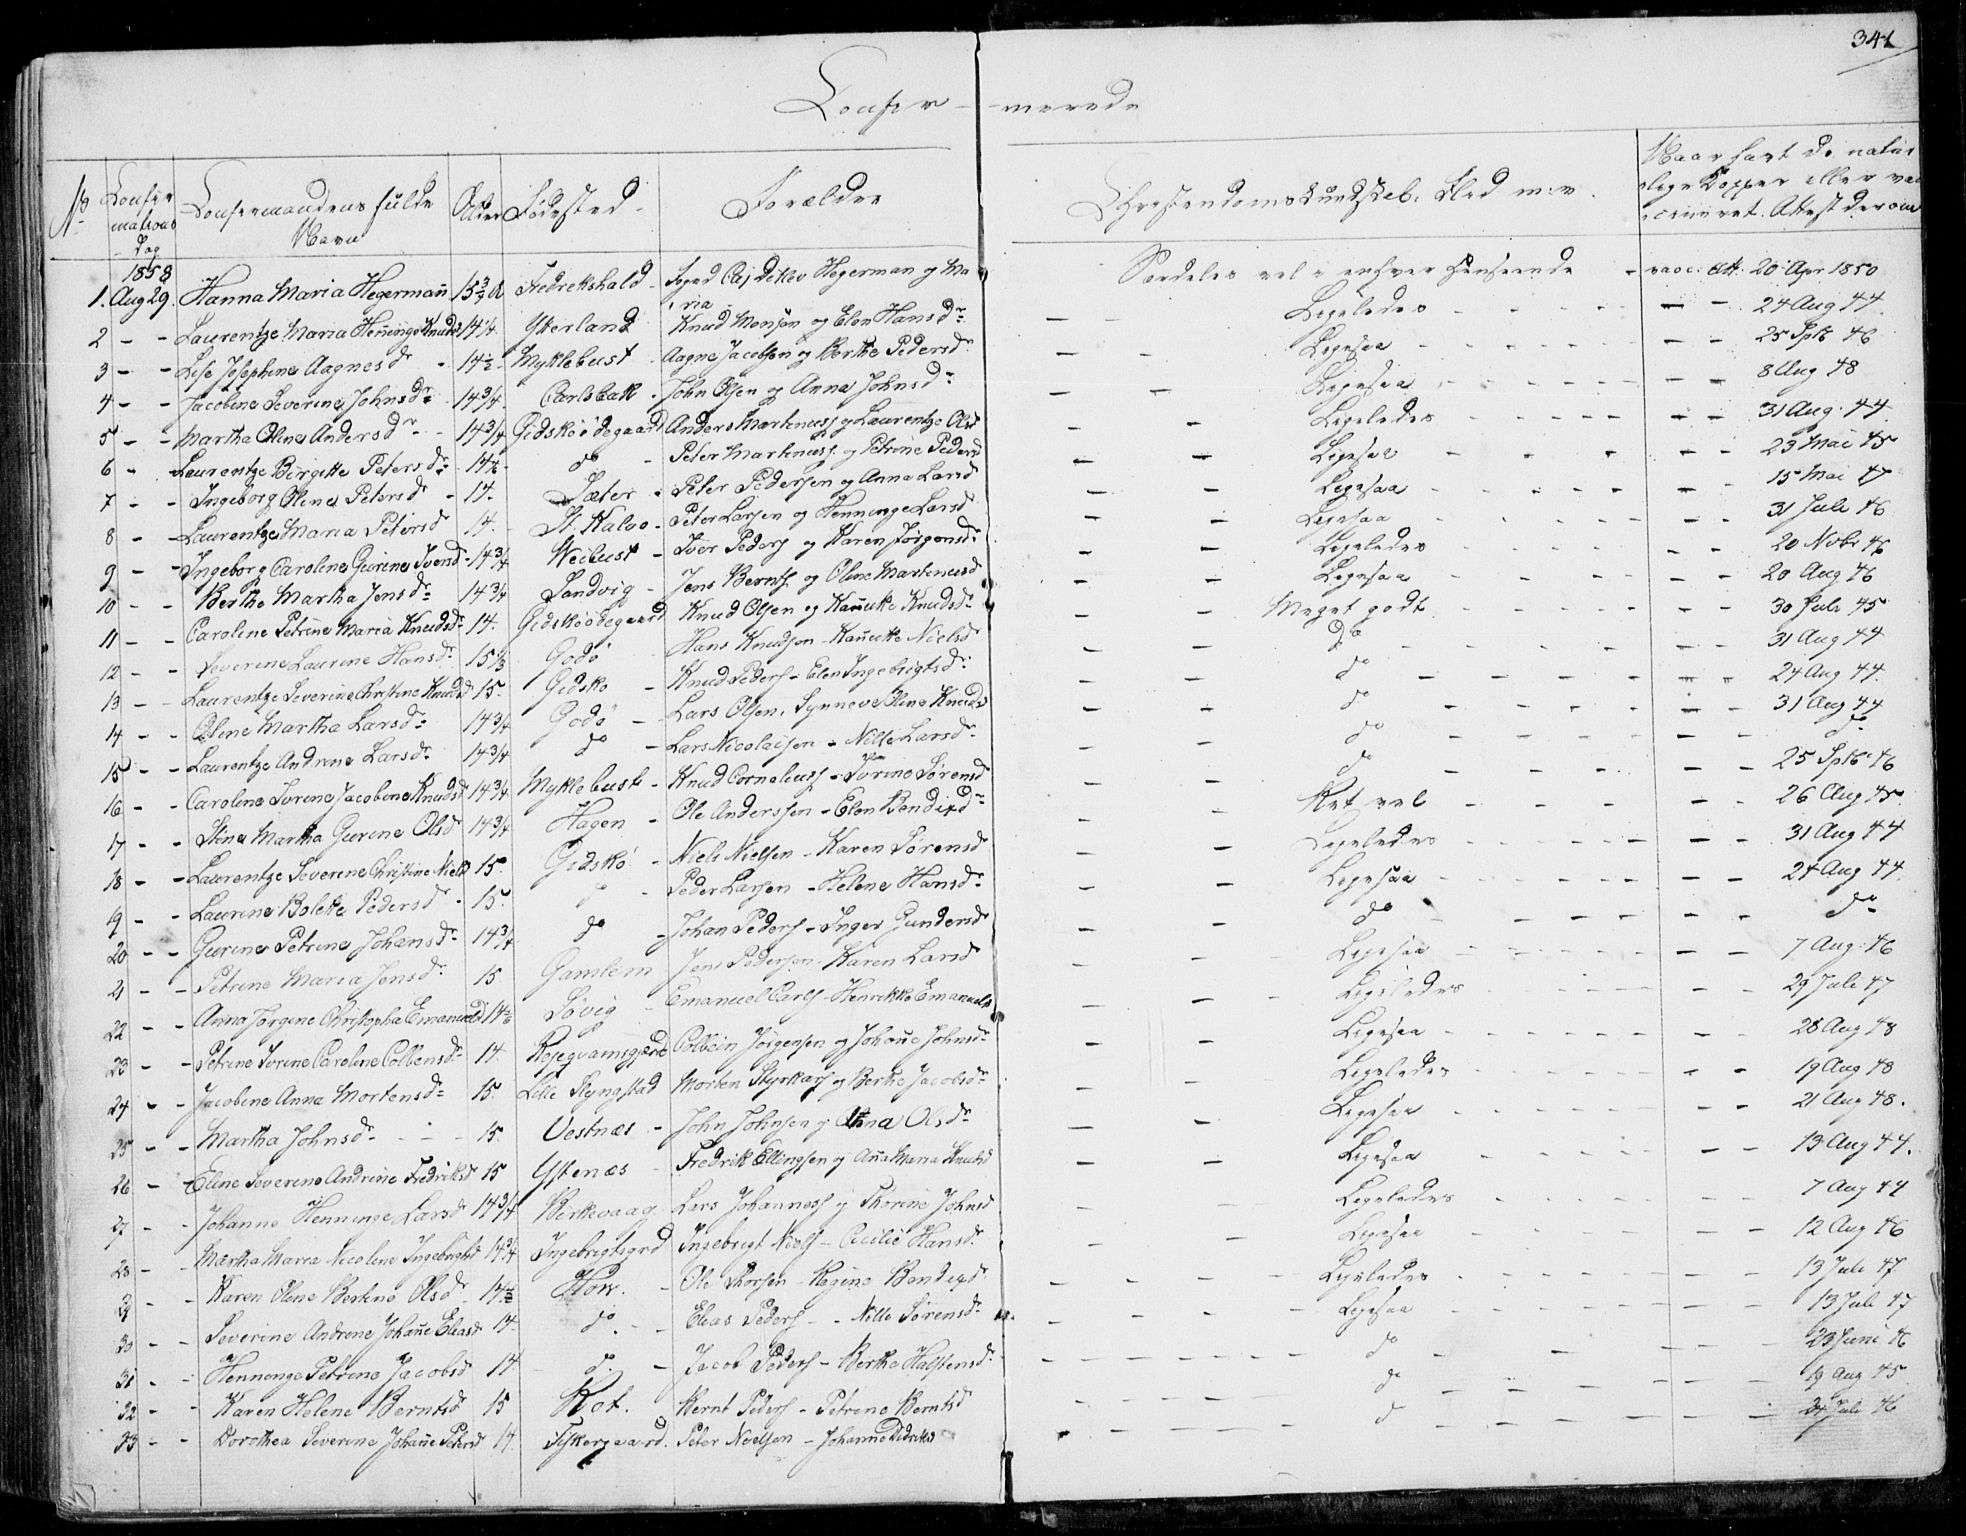 341
Confir-merede
No
Confirmations Dag
Confirmandens fulde Navn
Alder
Fødested
Forældre
Christendomskundskab, Flid m. v.
Naar havt de naturlige Kopper eller vaccineret. Attest derom
1858
1. Aug 29. Hanna Maria Hegermañ 15 3/4 A Fredrikshald - Foged Caj Ditlev Hegerman og Maria - Særdeles vel i enhver Henseende - vacc. att. 20 Apr 1850
2 - - Laurentze Maria Heñinge Knudsd 14 1/4 Ytterland - Knud Monsen og Elen Hansdr - Ligeledes - 24 Aug 44
3 - - Lise Josephine Aagnesd - 14 1/2 - Myklebust - Aagne Jacobsen og Berthe Pedersd - Ligesaa - 25 Sptb 46
4 - - Jacobine Severine Johnsdr 14 3/4 Carlsbak - John Olsen og Anna Johnsdr - Ligesaa - 8 Aug 48
5 - - Martha Oline Andersdr - 14 3/4 Gidskøødegaard Anders Martinuss og Laurentze Olsd - Ligeledes - 31 Aug. 44
6 - Laurentze Birgitte Petersdr - 14 1/2 - do - Peter Martinuss og Petrine Pedersd - Ligesaa - 23 Mai 45
7 - - Ingeborg Oline Petersd - 14. Sæter - Peter Pedersen og Anna Larsd - Ligesaa - 15 Mai 47
8 - - Laurentze Maria Petersd 14. St. Kalvø - Peter Larsen og Henninge Larsd - Ligesaa - 31 Juli 46
9 - - Ingeborg Caroline Gurine Iversd - 14 3/4 Weibust - Iver Peders og Karen Jørgensdr - Ligeledes - 20 Nvbr 46
10 - - Berthe Martha Jensdr 14 3/4 Sandvig - Jens Bernts og Oline Martinusd - Ligesaa - 20 Aug 46
11 - - Caroline Petrine Maria Knudsdr 14. Gidskøødegaard Knud Olsen og Hañuike Knudsdr - Meget godt - 30 Juli 45
12 - - Severine Laurine Hansdr 15 1/3 Godø - Hans Knudsen - Kañutte Nielsd - do - 31 Aug 44
13 - - Laurentze Severine Christine Knudsd 15. Gidskø - Knud Peders - Elen Ingebrigtsdr - do - 24 Aug 44.
14 - - Oline Martha Larsdr 14 3/4 Godø - Lars Olsen, Synneve Oline Knudsd - do - 31 Aug 44
15 - - Laurentze Andrine Larsdr 14 3/4 do - Lars Nicolaisen - Nille Larsdr - do - do
16 - - Caroline Sorine Jacobine Knudsd 14 3/4 Myklebust - Knud Corneliuss - Sorine Sørensd - do - 25 Sptb 46
17 - - Stine Martha Gurine Olsd 14 3/4 Hagen - Ole Anderssen - Elen Bendixdr - Ret vel - 26 Aug 45.
18 - - Laurentze Severine Christine Niels 15. Gidskø - Niels Nielsen - Karen Sørensd - Ligeledes - 31 Aug 44
19 - - Laurine Bolette Pedersd - 15. do - Peder Larsen - Helene Hansdr - Ligesaa - 24 Aug 44.
20 - - Gurine Petrine Johansdr 14 3/4 do - Johan Peders - Inger Gundersd - do - do
21 - - Petrine Maria Jensdr 15 Gamlem Jens Pedersen - Karen Larsd - Ligesaa - 7 Aug. 46
22 - - Anna Jørgine Christopha Emanuelsd 14 1/2 Søvig - Emanuel Carls - Henrikke Emanuels - Ligeledes - 29 Juli 47
23 - - Petrine Sorine Caroline Colbensdr 14. Colbein Jørgensen og Johañe Johnsdr - Ligesaa - 28 Aug 48
24 - - Jacobine Anna Mortensdr 15. Lille Slyngstad Morten Styrkars og Berthe Jacobsdr - Ligeledes - 19 Aug 48
25 - - Martha Johnsdr - - - 15. Vestnæs - John Johnsen og Anna Olsdr - Ligesaa - 21 Aug 48.
26 - - Eline Severine Andrine Fredriksd 15 Ystenæs - Fredrik Ellingsen og Aña Maria Knudsd - Ligesaa - 13 Aug 44.
27 - - Johanne Henninge Larsd 14 3/4 Birkevaag - Lars Johanness og Thorine Johnsd - Ligeledes - 7 Aug 44
28 - - Martha Maria Nicoline Ingebrigtsd 14 3/4 Ingebrigtsgrd Ingebrigt Niels - Cicilie Hansdr - Ligesaa - 12 Aug 46
29 - - Karen Oline Bertine Olsd 14 1/2 How. - Ole Thorsen - Regine Bendixd - Ligeledes - 13 Juli 47
30 - - Severine Andrine Johañe Eliasd 14 do - Elias Peders - - Nille Sørensdr - Ligesaa - 13 Juli 47
31 - - Henninge Petrine Jacobsd 14 - do - Jacob Peders - Berthe Halstensdr - do - 23 Juni 46
32 - - Karen Helene Berntsd 15 Rot. Bernt Peders - Petrine Berntsd - do - 19 Aug 45
33 - - Dorothea Severine Johañe Petersd 14. Fiskergaard. Peter Nielsen - Johanne Didriksd - do - 31 Juli 46